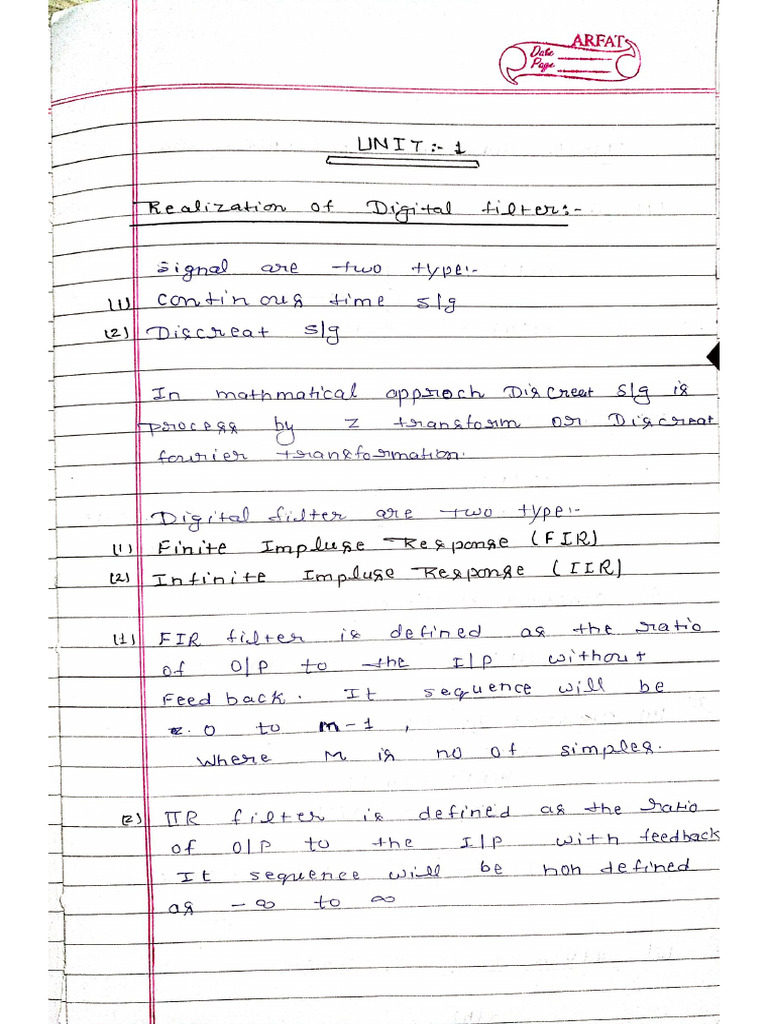 ARFAT
Date
Page
UNIT:- 1
Realization of Digital filter:-
Signal are two type:-
(1) continous time s/g
(2) Discreat s/g
In mathmatical approch Discreet s/g is
process by z transform or Discreat
fourier transformation.
Digital filter are two type:-
(1) Finite Impluse Response (FIR)
(2) Infinite Impluse Response (IIR)
(1) FIR filter is defined as the ratio
of O/P to the I/P without
Feed back. It sequence will be
0 to m-1,
where M is no of simples.
(2) IIR filter is defined as the ratio
of O/P to the I/P with feedback
It sequence will be non defined
as -∞ to ∞